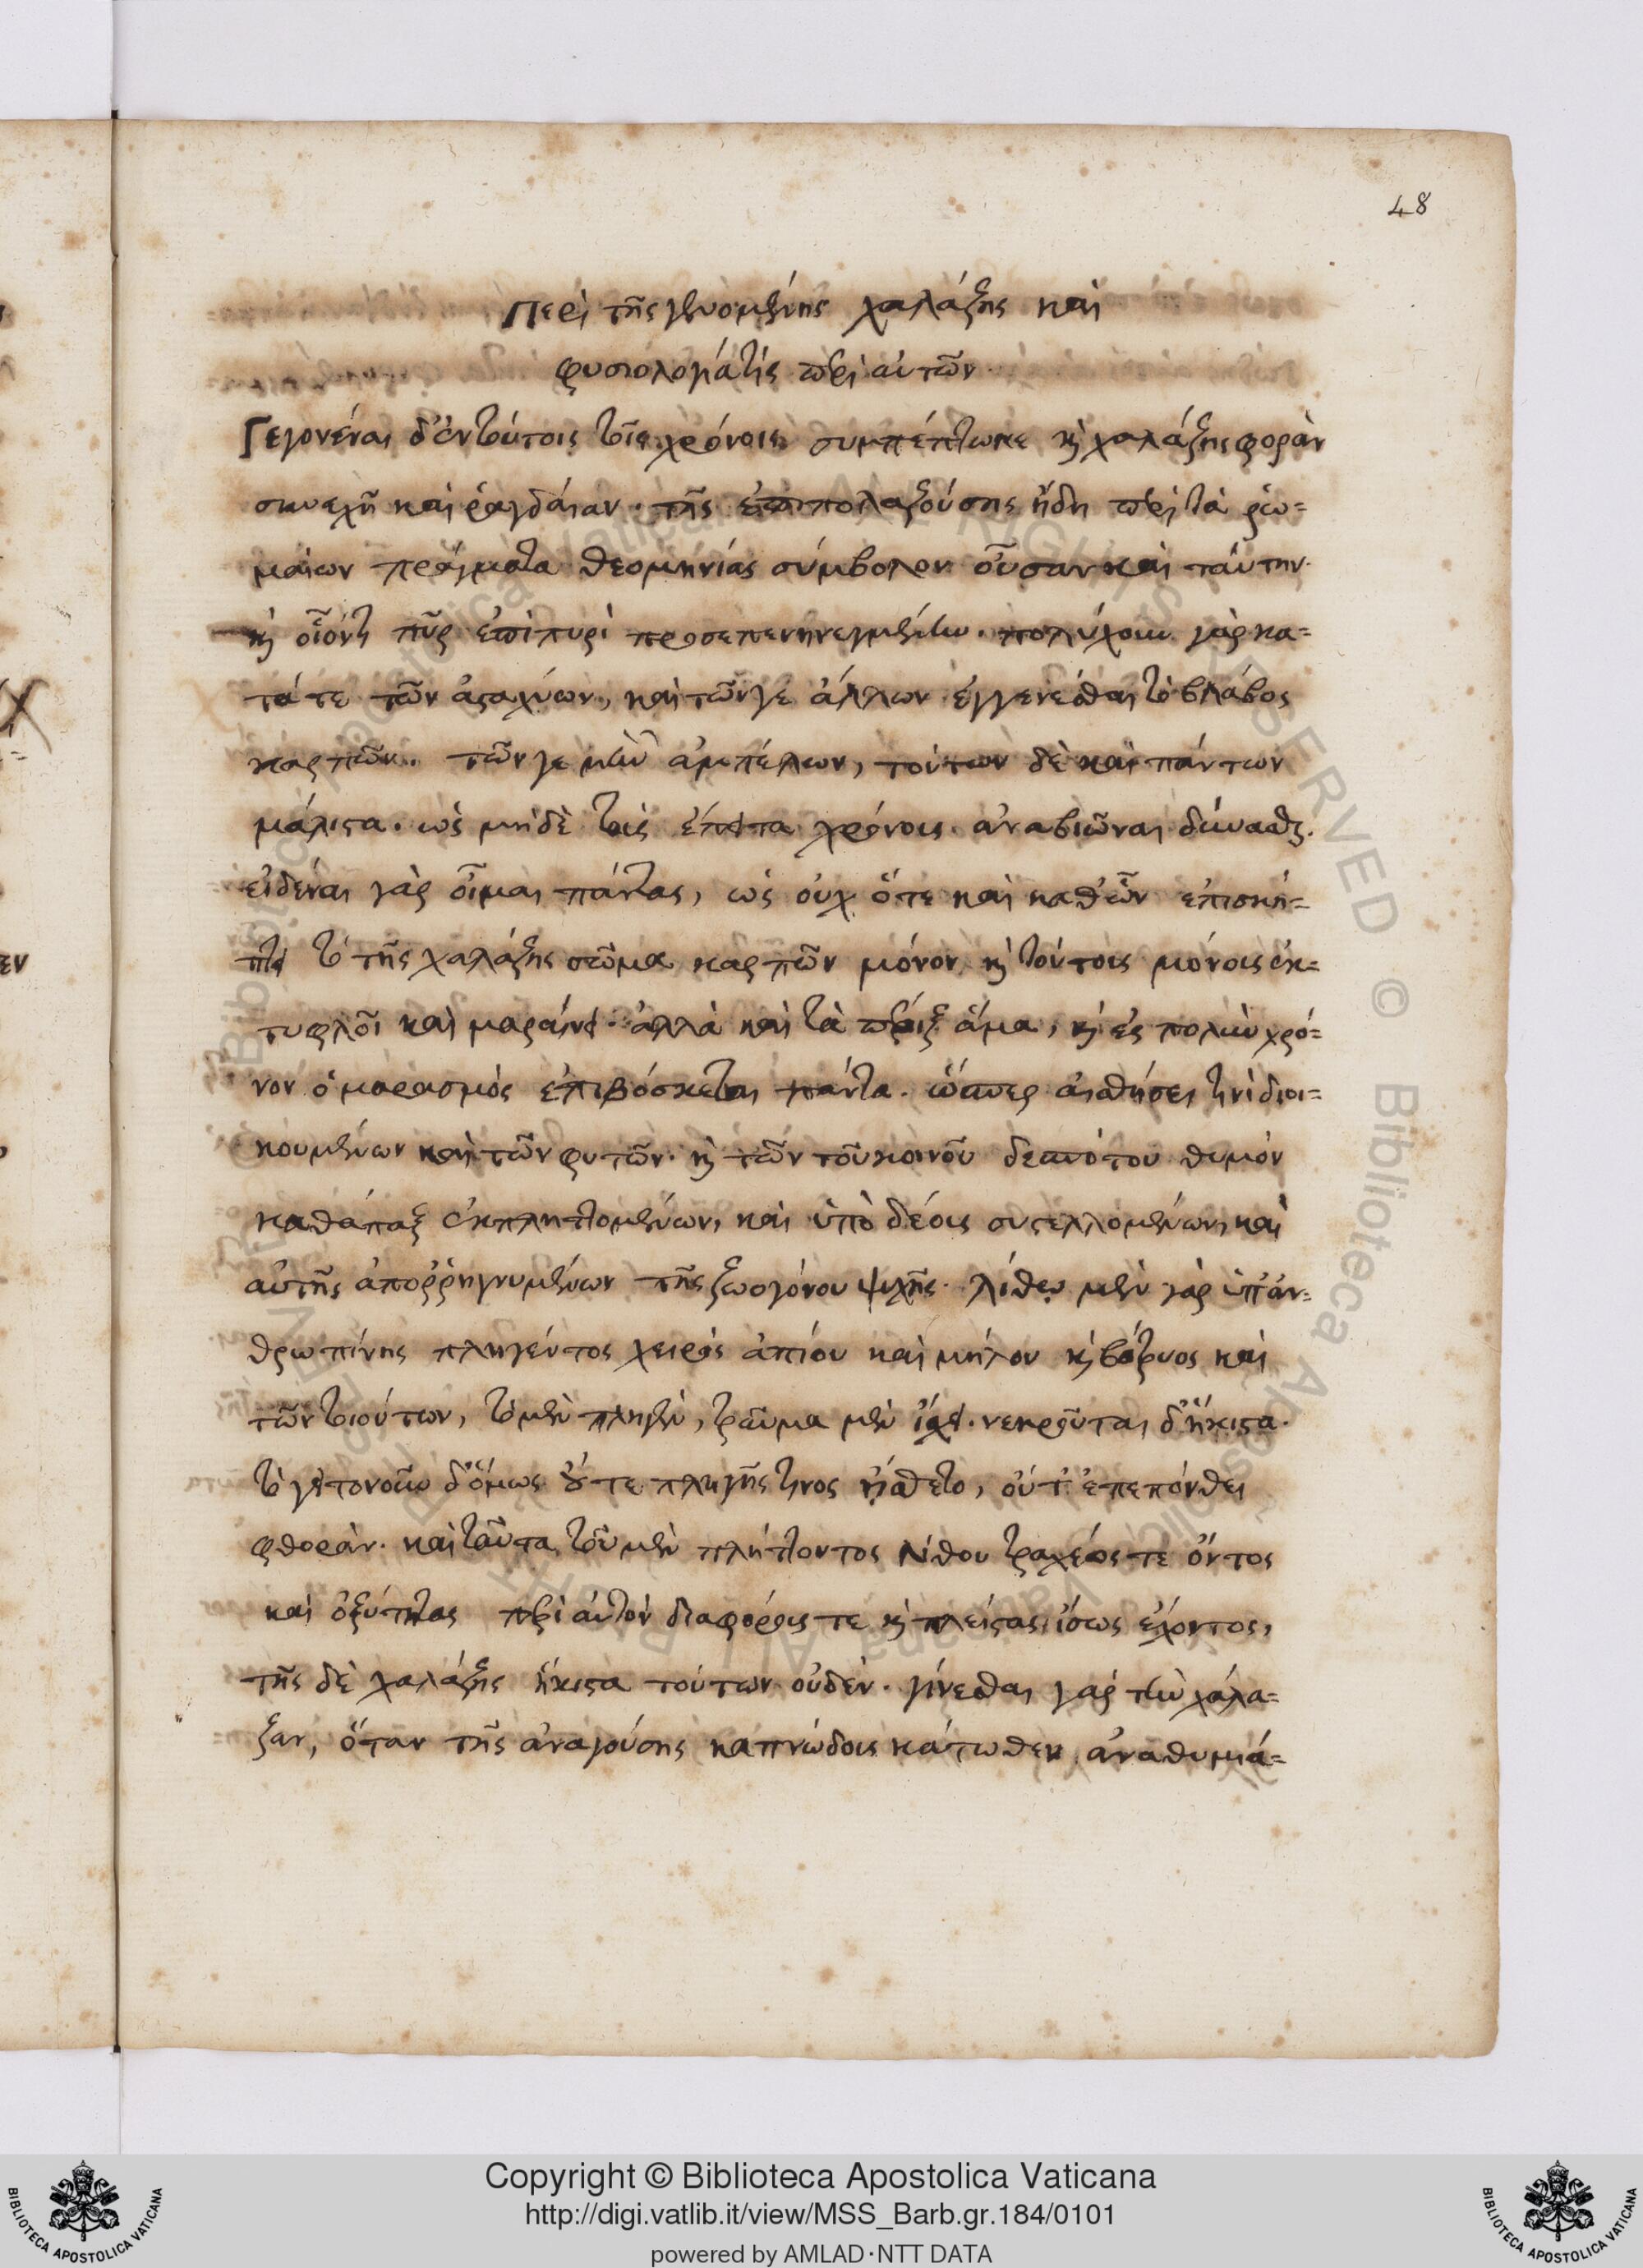 48
Περὶ τῆς γενομένης χαλάζης καὶ
φυσιολογία τίς περὶ αὐτῶν
Γεγονέναι δ' ἐν τούτοις τοῖς χρόνοις συμπέπτωκε κ̀ χαλάζης φορὰν
συνεχῆ καὶ ῥαγδαίαν· τῆς ἐπιπολαζούσης ἤδη περὶ τὰ ῥω=
μαίων πράγματα θεομηνίας σύμβολον οὖσαν καὶ ταύτην·
κ̀ οἷόν τι πῦρ ἐπὶ πυρὶ προσεπενηνεγμένην. πολύχουν γὰρ κα=
τά τε τῶν ἀσταχύων, καὶ τῶν γε ἄλλων ἐγγενέσθαι τὸ βλάβος
καρπῶν. τῶν γε μὴν ἀμπέλων, τούτων δὲ καὶ πάντων
μάλιστα. ὡς μηδὲ τοῖς ἔπειτα χρόνοις ἀναβιῶναι δύνασθαι.
εἰδέναι γὰρ οἶμαι πάντας, ὡς οὐχ ὅτε καὶ καθ' ὧν ἐπισκή=
πτει τὸ τῆς χαλάζης σῶμα καρπῶν μόνον κ̀ τούτοις μόνοις ἐκ=
τυφλοῖ καὶ μαραίνει· ἀλλὰ καὶ τὰ πέριξ ἅμα, κ̀ ἐς πολὺν χρό=
νον ὁ μαρασμὸς ἐπιβόσκεται πάντα. ὥσπερ αἰσθήσει τινὶ διοι=
κουμένων καὶ τῶν φυτῶν· κ̀ τῶν τοῦ κοινοῦ δεσπότου θυμὸν
καθάπαξ ἐκπληττομένων, καὶ ὑπὸ δέους συστελλομένων, καὶ
αὐτῆς ἀποῤῥηγνυμένων τῆς ζωογόνου ψυχῆς. λίθῳ μὲν γὰρ ὑπ' ἀν=
θρωπίνης πληγέντος χειρὸς ἀπίου καὶ μήλου κ̀ βότρυος καὶ
τῶν τοιούτων, τὸ μὲν πληγὲν, τραῦμα μὲν ἴσχει. νεκροῦται δ' ἥκιστα.
τὸ γειτονοῦν δ' ὅμως οὔτε πληγῆς τινος ᾔσθετο, οὔτ' ἐπεπόνθει
φθοράν. καὶ ταῦτα τοῦ μὲν πλήττοντος λίθου τραχέος τε ὄντος
καὶ ὀξύτητας περὶ αὐτὸν διαφόρους τε κ̀ πλείστας ἴσως ἔχοντος,
τῆς δὲ χαλάζης ἥκιστα τούτων οὐδέν. γίνεσθαι γὰρ τὴν χάλα=
ζαν, ὅταν τῆς ἀναγούσης καπνώδους κάτωθεν ἀναθυμιά=
Copyright © Biblioteca Apostolica Vaticana
http://digi.vatlib.it/view/MSS_Barb.gr.184/0101
powered by AMLAD·NTT DATA
BIBLIOTECA APOSTOLICA VATICANA
BIBLIOTECA APOSTOLICA VATICANA